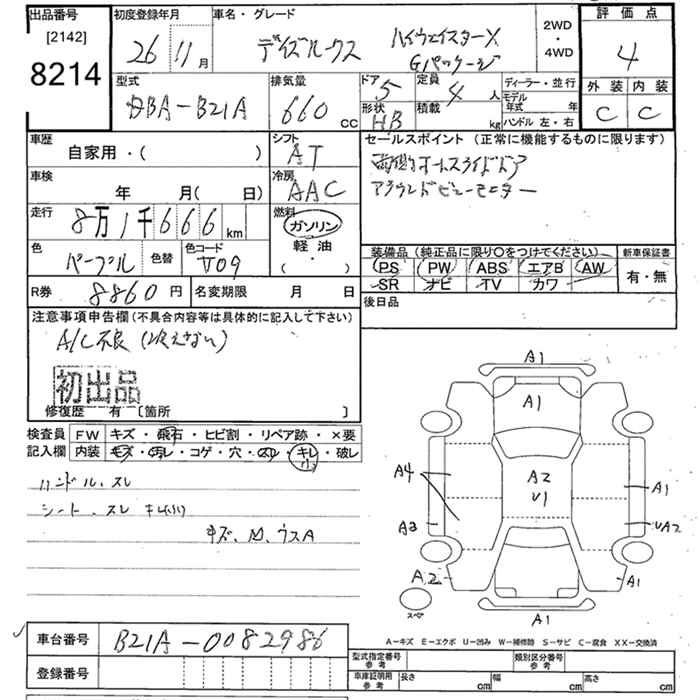 出品番号
[2142]
8214
初度登録年月
26 11月
車名・グレード
デイズルークス
ハイウェイスターX
Gパッケージ
2WD
・
4WD
評価点
4
外装 内装
C C
型式
DBA-B21A
排気量
660
CC
ドア 5
定員 4 人
形状 HB
積載 kg
ディーラー・並行
モデル年式 年
ハンドル 左・右
車歴
自家用・( )
シフト
AT
車検
年 月( 日)
冷房
AAC
走行
8万1千666km
燃料
ガソリン
軽油
( ・ )
色
パープル
色替
色コード
V09
R券
8860円
名変期限 月 日
セールスポイント (正常に機能するものに限ります)
両側オートスライドドア
アラウンドビューモニター
装備品 (純正品に限り○をつけてください)
PS PW ABS エアB AW
SR ナビ TV カワ
新車保証書
有・無
後日品
注意事項申告欄 (不具合内容等は具体的に記入して下さい)
A/C不良 (冷えない)
初出品
修復歴 有 [箇所 ]
検査員
記入欄
FW キズ・飛石・ヒビ割・リペア跡・×要
内装 キズ・汚れ・コゲ・穴・スレ・キレ・破レ
小
ハンドル、スレ
シート、スレ
A1
A1
A4
A2
U1
A1
A3
UA2
A2
A1
A1
スペア
A-キズ E-エクボ U-凹み W-補修跡 S-サビ C-腐食 XX-交換済
車台番号
B21A-0082986
登録番号
型式指定番号
参考
類別区分番号
参考
車庫証明用
参考
長さ cm
幅 cm
高さ cm